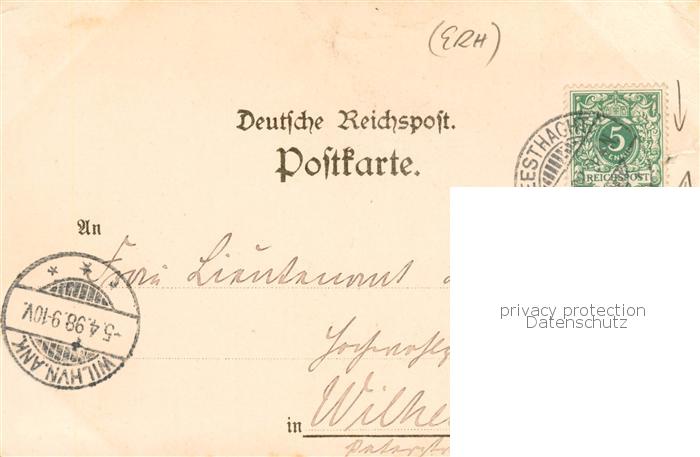 (ERH)
Deutsche Reichspost.
Postkarte.
EESTHACH
5
PFENNIG
REICHSPOST
An
Frau Lieutenant
Hochwohlg
in Wilhe
Peterstr
WILHVN.ANK.
-5.4.98.9-10V.
privacy protection
Datenschutz